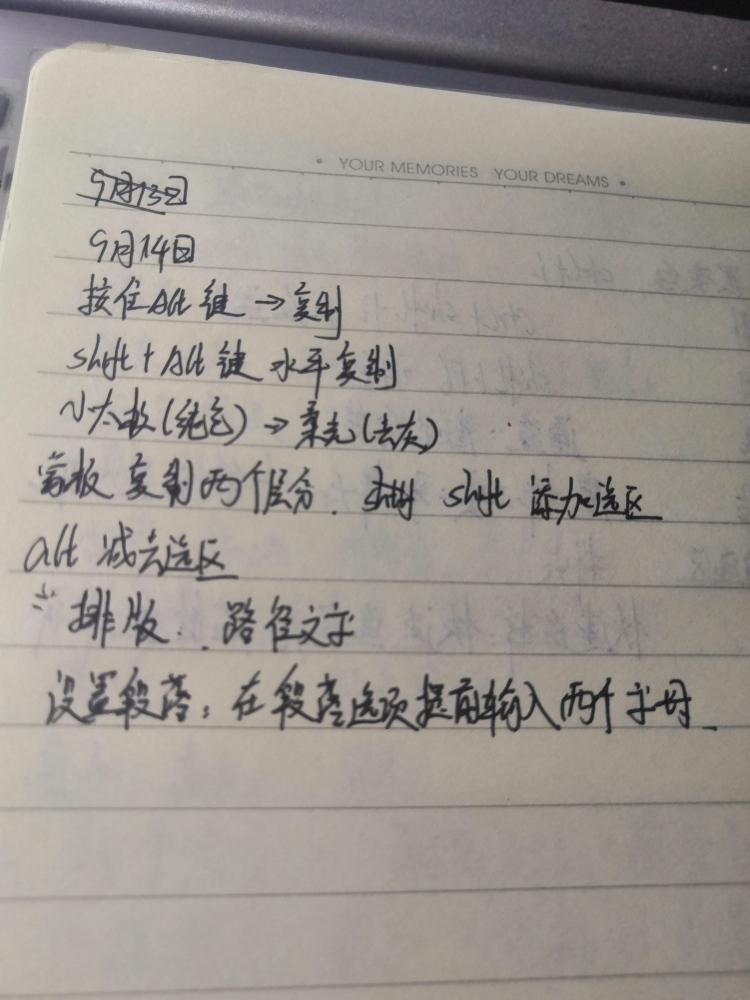 YOUR MEMORIES YOUR DREAMS
9月13日
9月14日
按住Alt键→复制
shift+Alt键 水平复制
小太极(纯色)→柔光(去灰)
蒙板 复制两个层分. shift 添加选区
alt 减去选区
排版. 路径文字
设置段落:在段落选项提前输入两个字母